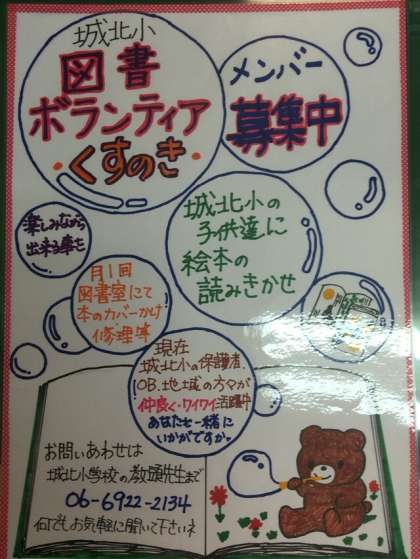 城北小
図書
ボランティア
・くすのき・
メンバー
募集中
楽しみながら
出来る事を
城北小の
子供達に
絵本の
読みきかせ
月1回
図書室にて
本のカバーかけ
修理等
現在
城北小の保護者、
OB、地域の方々が
仲良く・ワイワイ活躍中
あなたも一緒に
いかがですか。
お問いあわせは
城北小学校の教頭先生まで
06-6922-2134
何でもお気軽に聞いて下さいネ